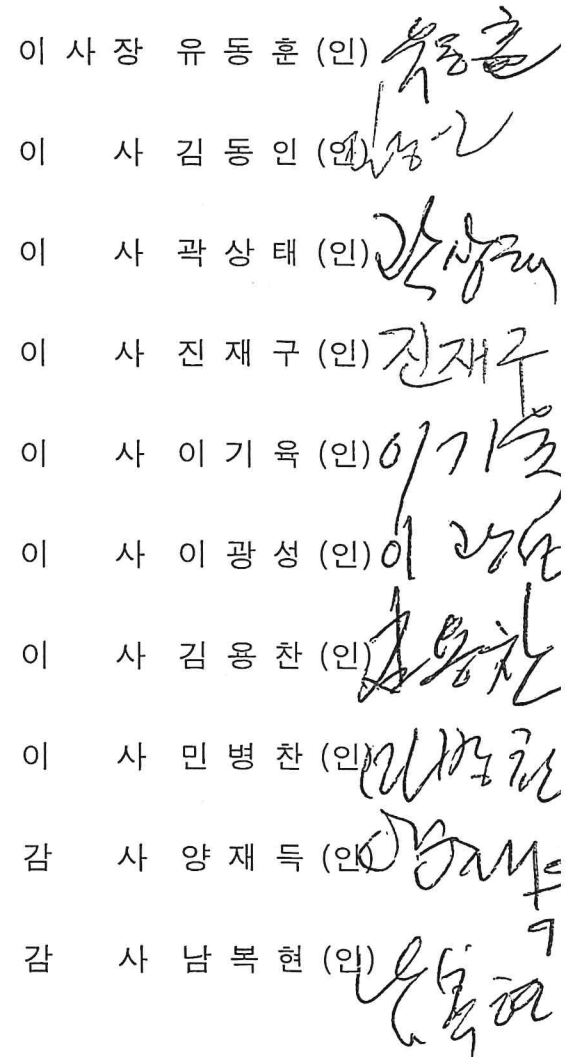 이 사 장 유 동 훈 (인) 유동훈
이 사 김 동 인 (인) 김동인
이 사 곽 상 태 (인) 곽상태
이 사 진 재 구 (인) 진재구
이 사 이 기 육 (인) 이기육
이 사 이 광 성 (인) 이광성
이 사 김 용 찬 (인) 김용찬
이 사 민 병 찬 (인) 민병찬
감 사 양 재 득 (인) 양재득
감 사 남 복 현 (인) 남복현